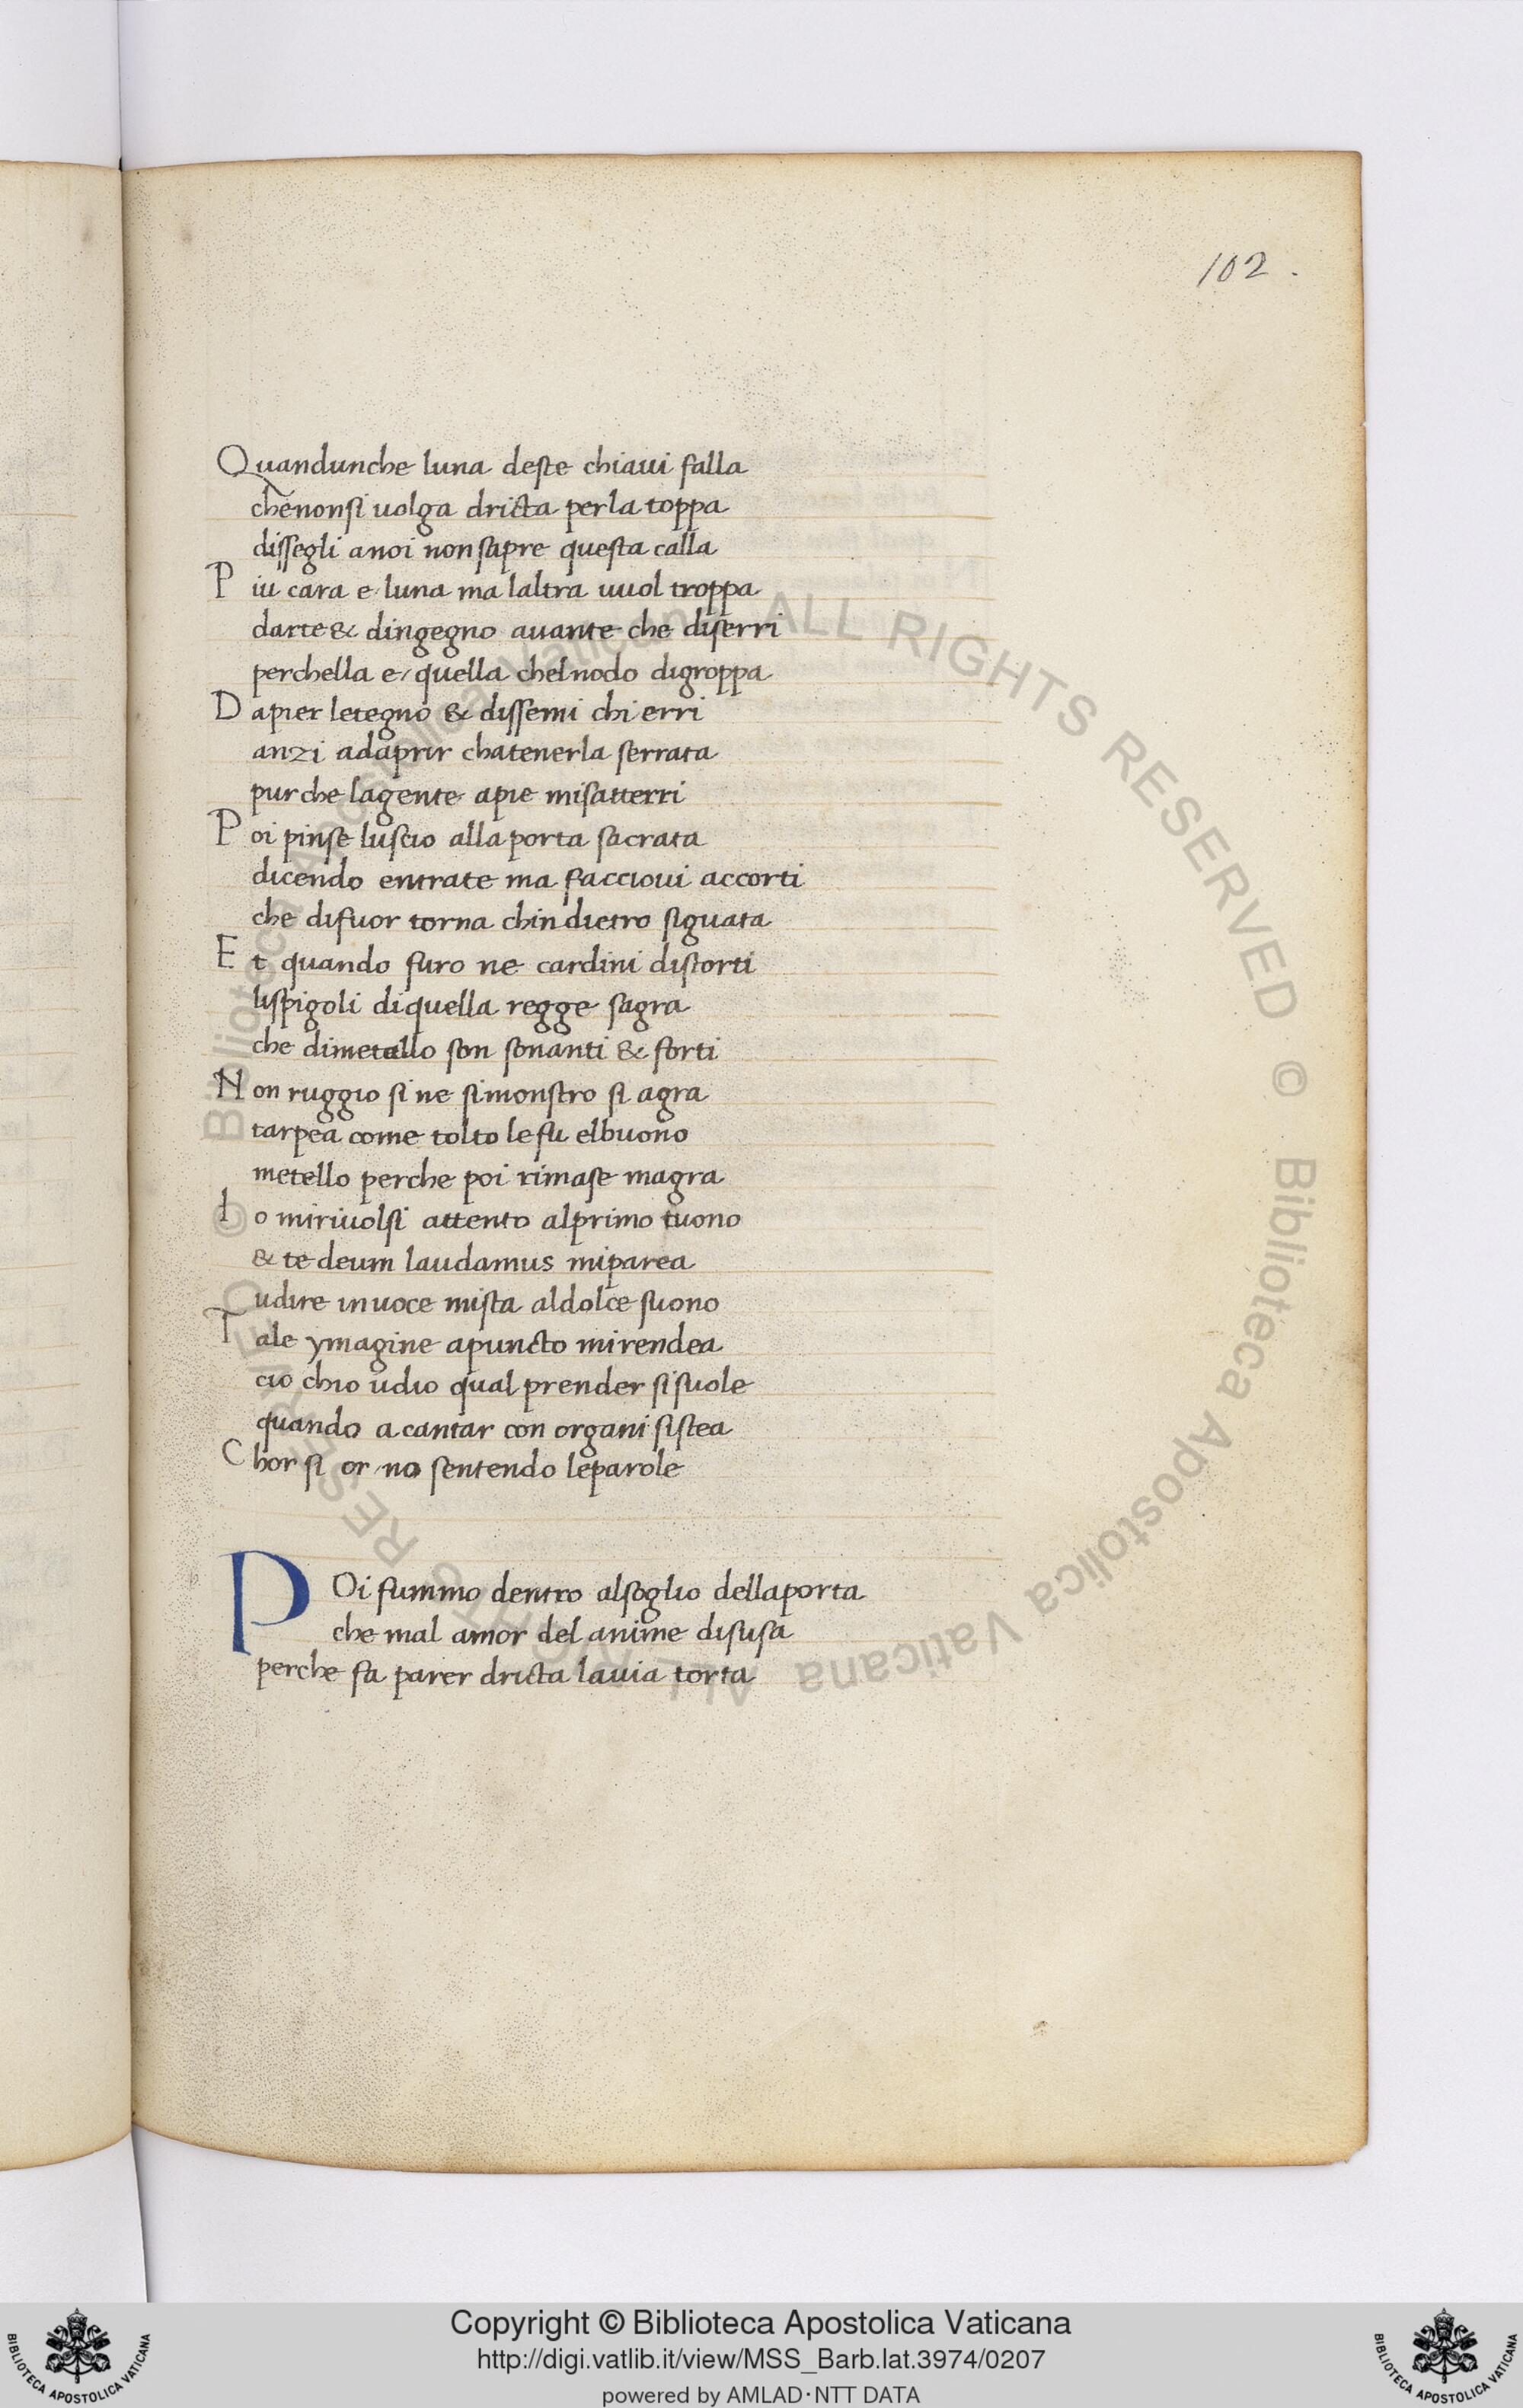 102.
Quandunche luna deste chiaui falla
chenonsi uolga dricta perla toppa
dissegli anoi non sapre questa calla
Piu cara e luna ma laltra uuol troppa
darte & dingegno auante che diserri
perchella e quella chel nodo digroppa
Dapier letegno & dissemi chi erri
anzi adaprir chatenerla serrata
pur che lagente apie misatterri
Poi pinse luscio alla porta sacrata
dicendo entrate ma faccioui accorti
che difuor torna chin dietro siguata
Et quando furo ne cardini distorti
lispigoli diquella regge sagra
che dimetallo son sonanti & forti
Non ruggio si ne simonstro si agra
tarpea come tolto lefu elbuono
metello perche poi rimase magra
Io miriuolsi attento alprimo tuono
& te deum laudamus miparea
udire inuoce mista aldolce suono
Tale ymagine apuncto mirendea
cio chio udio qual prender sisuole
quando a cantar con organi sistea
Chor si or no sentendo leparole
POi fummo dentro alsoglio dellaporta
che mal amor del anime disusa
perche fa parer dricta lauia torta
© Biblioteca Apostolica Vaticana ALL RIGHTS RESERVED © Biblioteca Apostolica Vaticana ALL RIGHTS RESERVED
Copyright © Biblioteca Apostolica Vaticana
http://digi.vatlib.it/view/MSS_Barb.lat.3974/0207
powered by AMLAD·NTT DATA
BIBLIOTECA APOSTOLICA VATICANA
BIBLIOTECA APOSTOLICA VATICANA